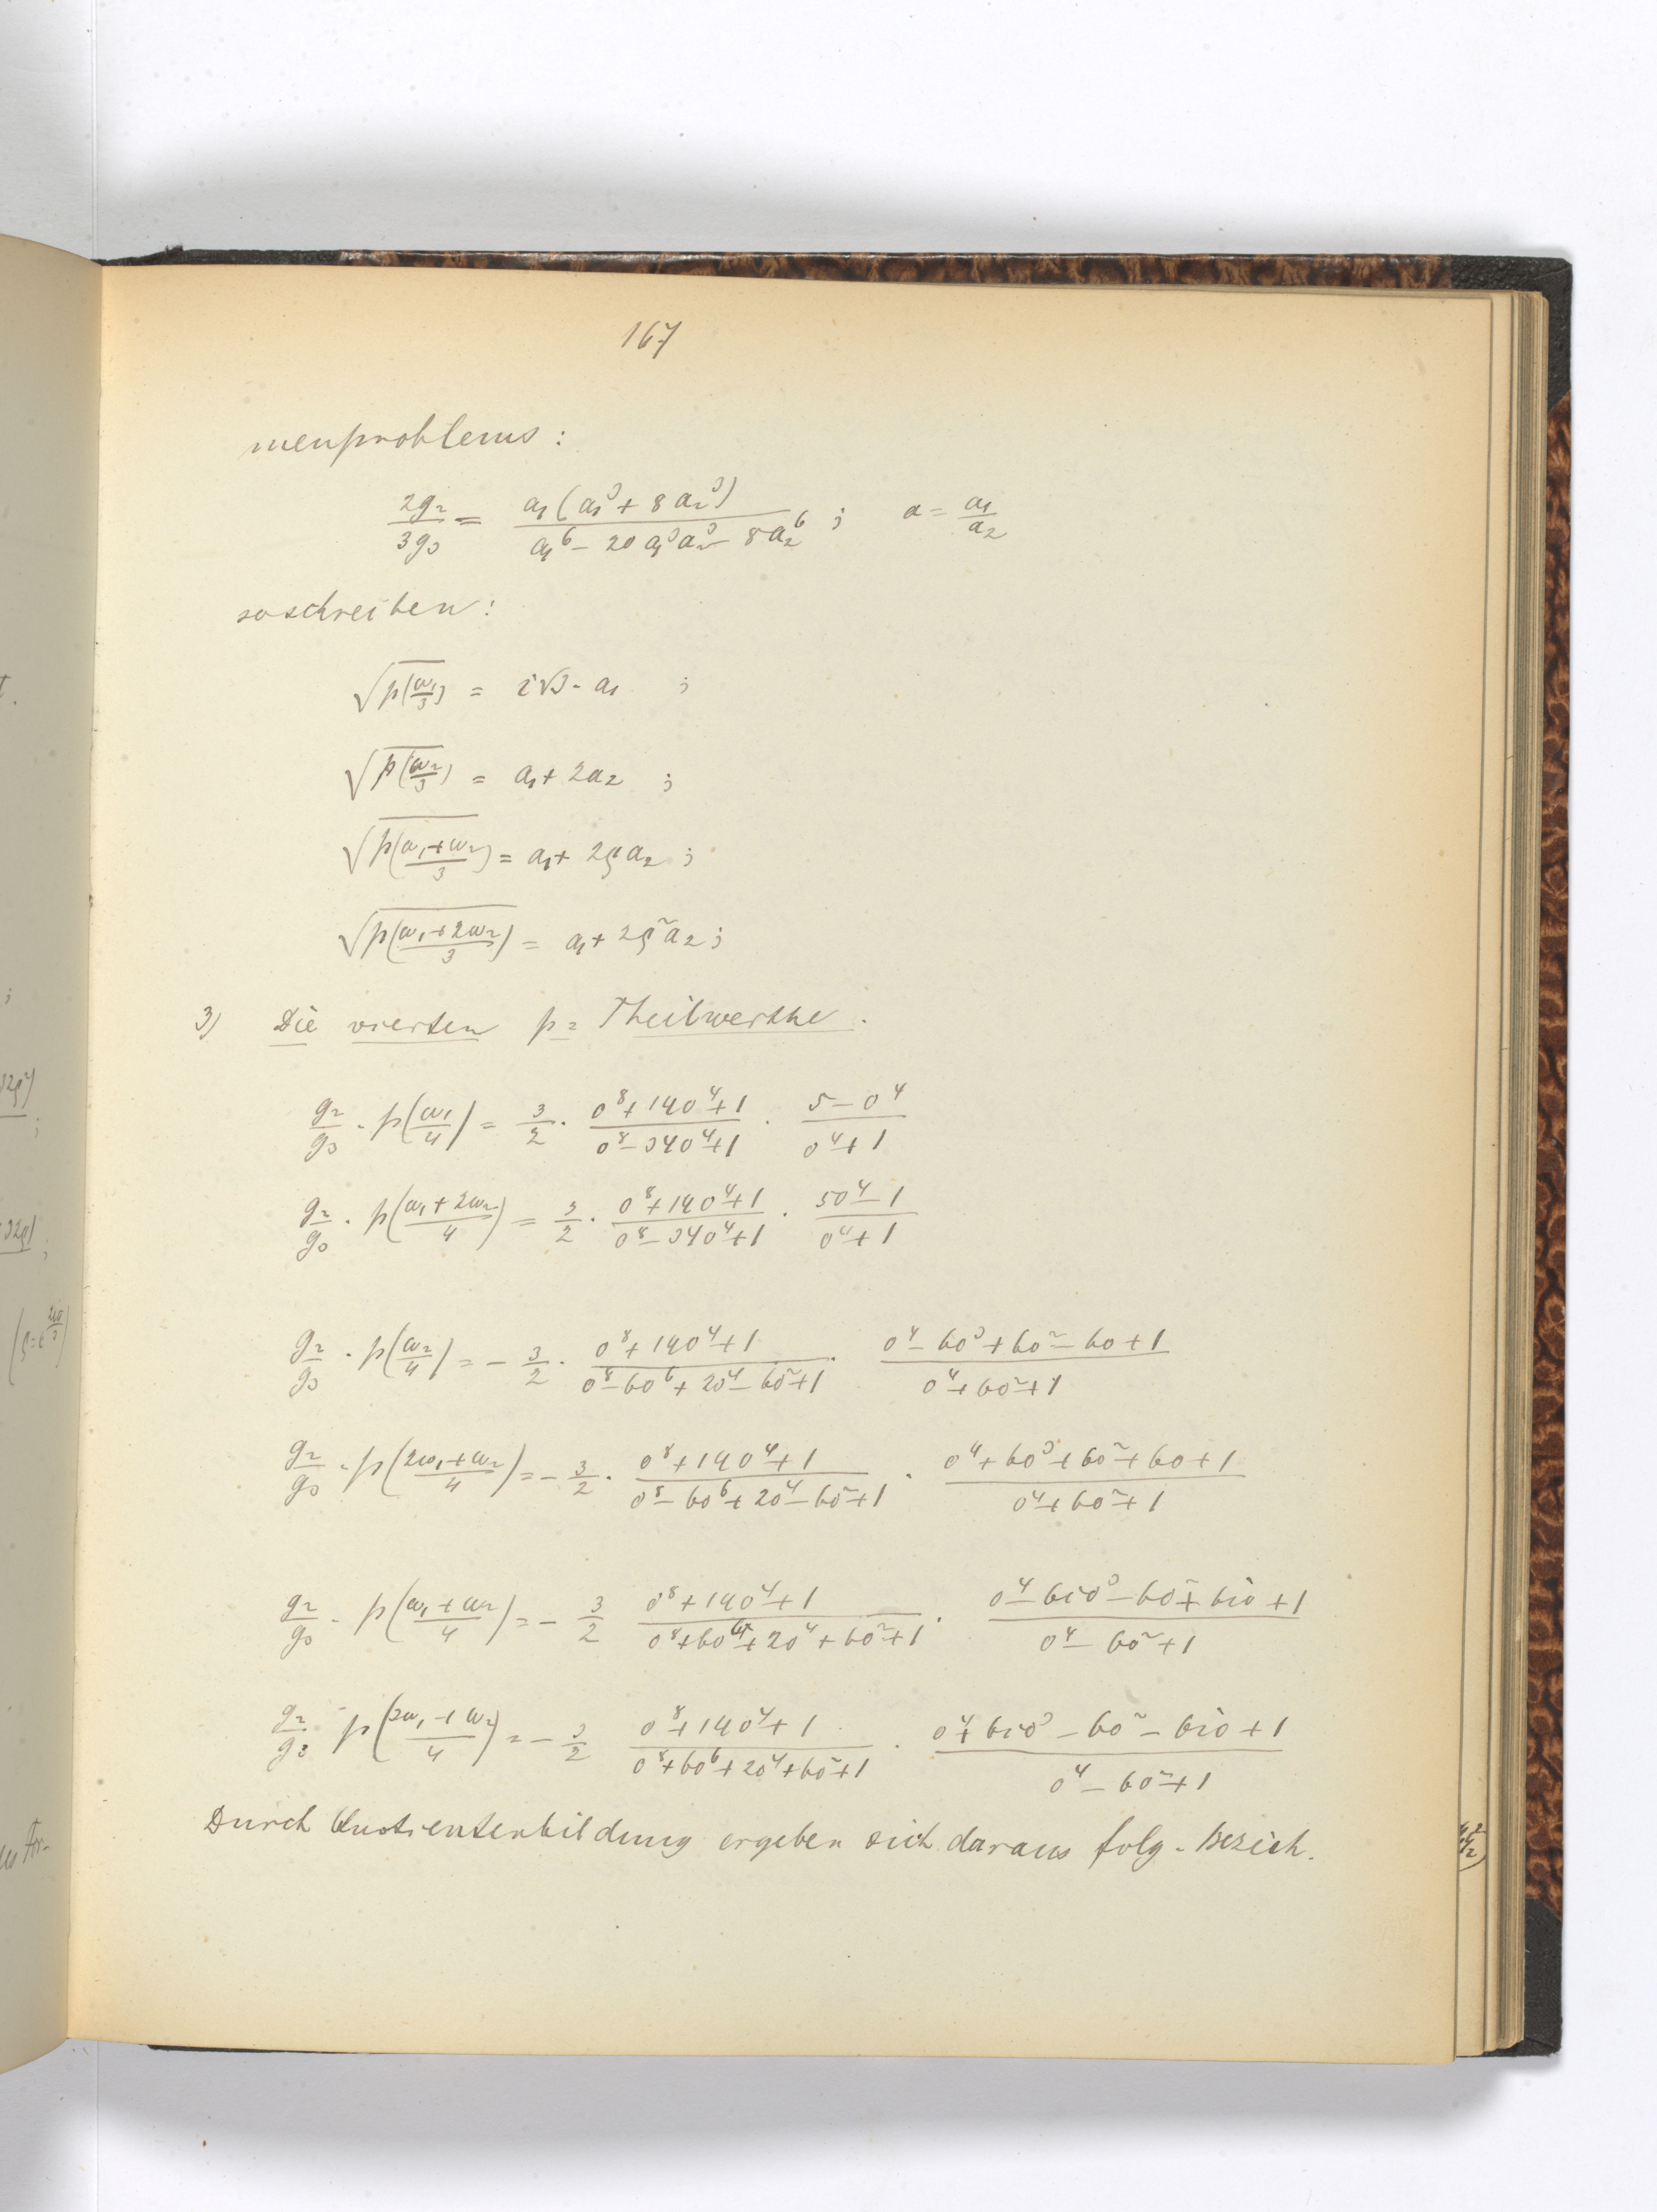 167
menproblems:
2g₂/3g₃ = a₁(a₁³ + 8a₂³)/(a₁⁶ − 20a₁³a₂³ − 8a₂⁶) ; a = a₁/a₂
so schreiben:
√p(ω₁/3) = i√3 · a₁ ;
√p(ω₂/3) = a₁ + 2a₂ ;
√p((ω₁+ω₂)/3) = a₁ + 2ρa₂ ;
√p((ω₁+2ω₂)/3) = a₁ + 2ρ²a₂ ;
3) Die vierten p = Theilwerthe.
g₂/g₃ · p(ω₁/4) = 3/2 · (o⁸ + 14o⁴ + 1)/(o⁸ − 34o⁴ + 1) · (5 − o⁴)/(o⁴ + 1)
g₂/g₃ · p((ω₁+2ω₂)/4) = 3/2 · (o⁸ + 14o⁴ + 1)/(o⁸ − 34o⁴ + 1) · (5o⁴ − 1)/(o⁴ + 1)
g₂/g₃ · p(ω₂/4) = − 3/2 · (o⁸ + 14o⁴ + 1)/(o⁸ − 6o⁶ + 2o⁴ − 6o² + 1) · (o⁴ − 6o³ + 6o² − 6o + 1)/(o⁴ + 6o² + 1)
g₂/g₃ · p((2ω₁+ω₂)/4) = − 3/2 · (o⁸ + 14o⁴ + 1)/(o⁸ − 6o⁶ + 2o⁴ − 6o² + 1) · (o⁴ + 6o³ + 6o² + 6o + 1)/(o⁴ + 6o² + 1)
g₂/g₃ · p((ω₁+ω₂)/4) = − 3/2 (o⁸ + 14o⁴ + 1)/(o⁸ + 6o⁶ + 2o⁴ + 6o² + 1) · (o⁴ − 6io³ − 6o² + 6io + 1)/(o⁴ − 6o² + 1)
g₂/g₃ p((3ω₁+ω₂)/4) = − 3/2 (o⁸ + 14o⁴ + 1)/(o⁸ + 6o⁶ + 2o⁴ + 6o² + 1) · (o⁴ + 6io³ − 6o² − 6io + 1)/(o⁴ − 6o² + 1)
Durch Quotientenbildung ergeben sich daraus folg. Bezieh.